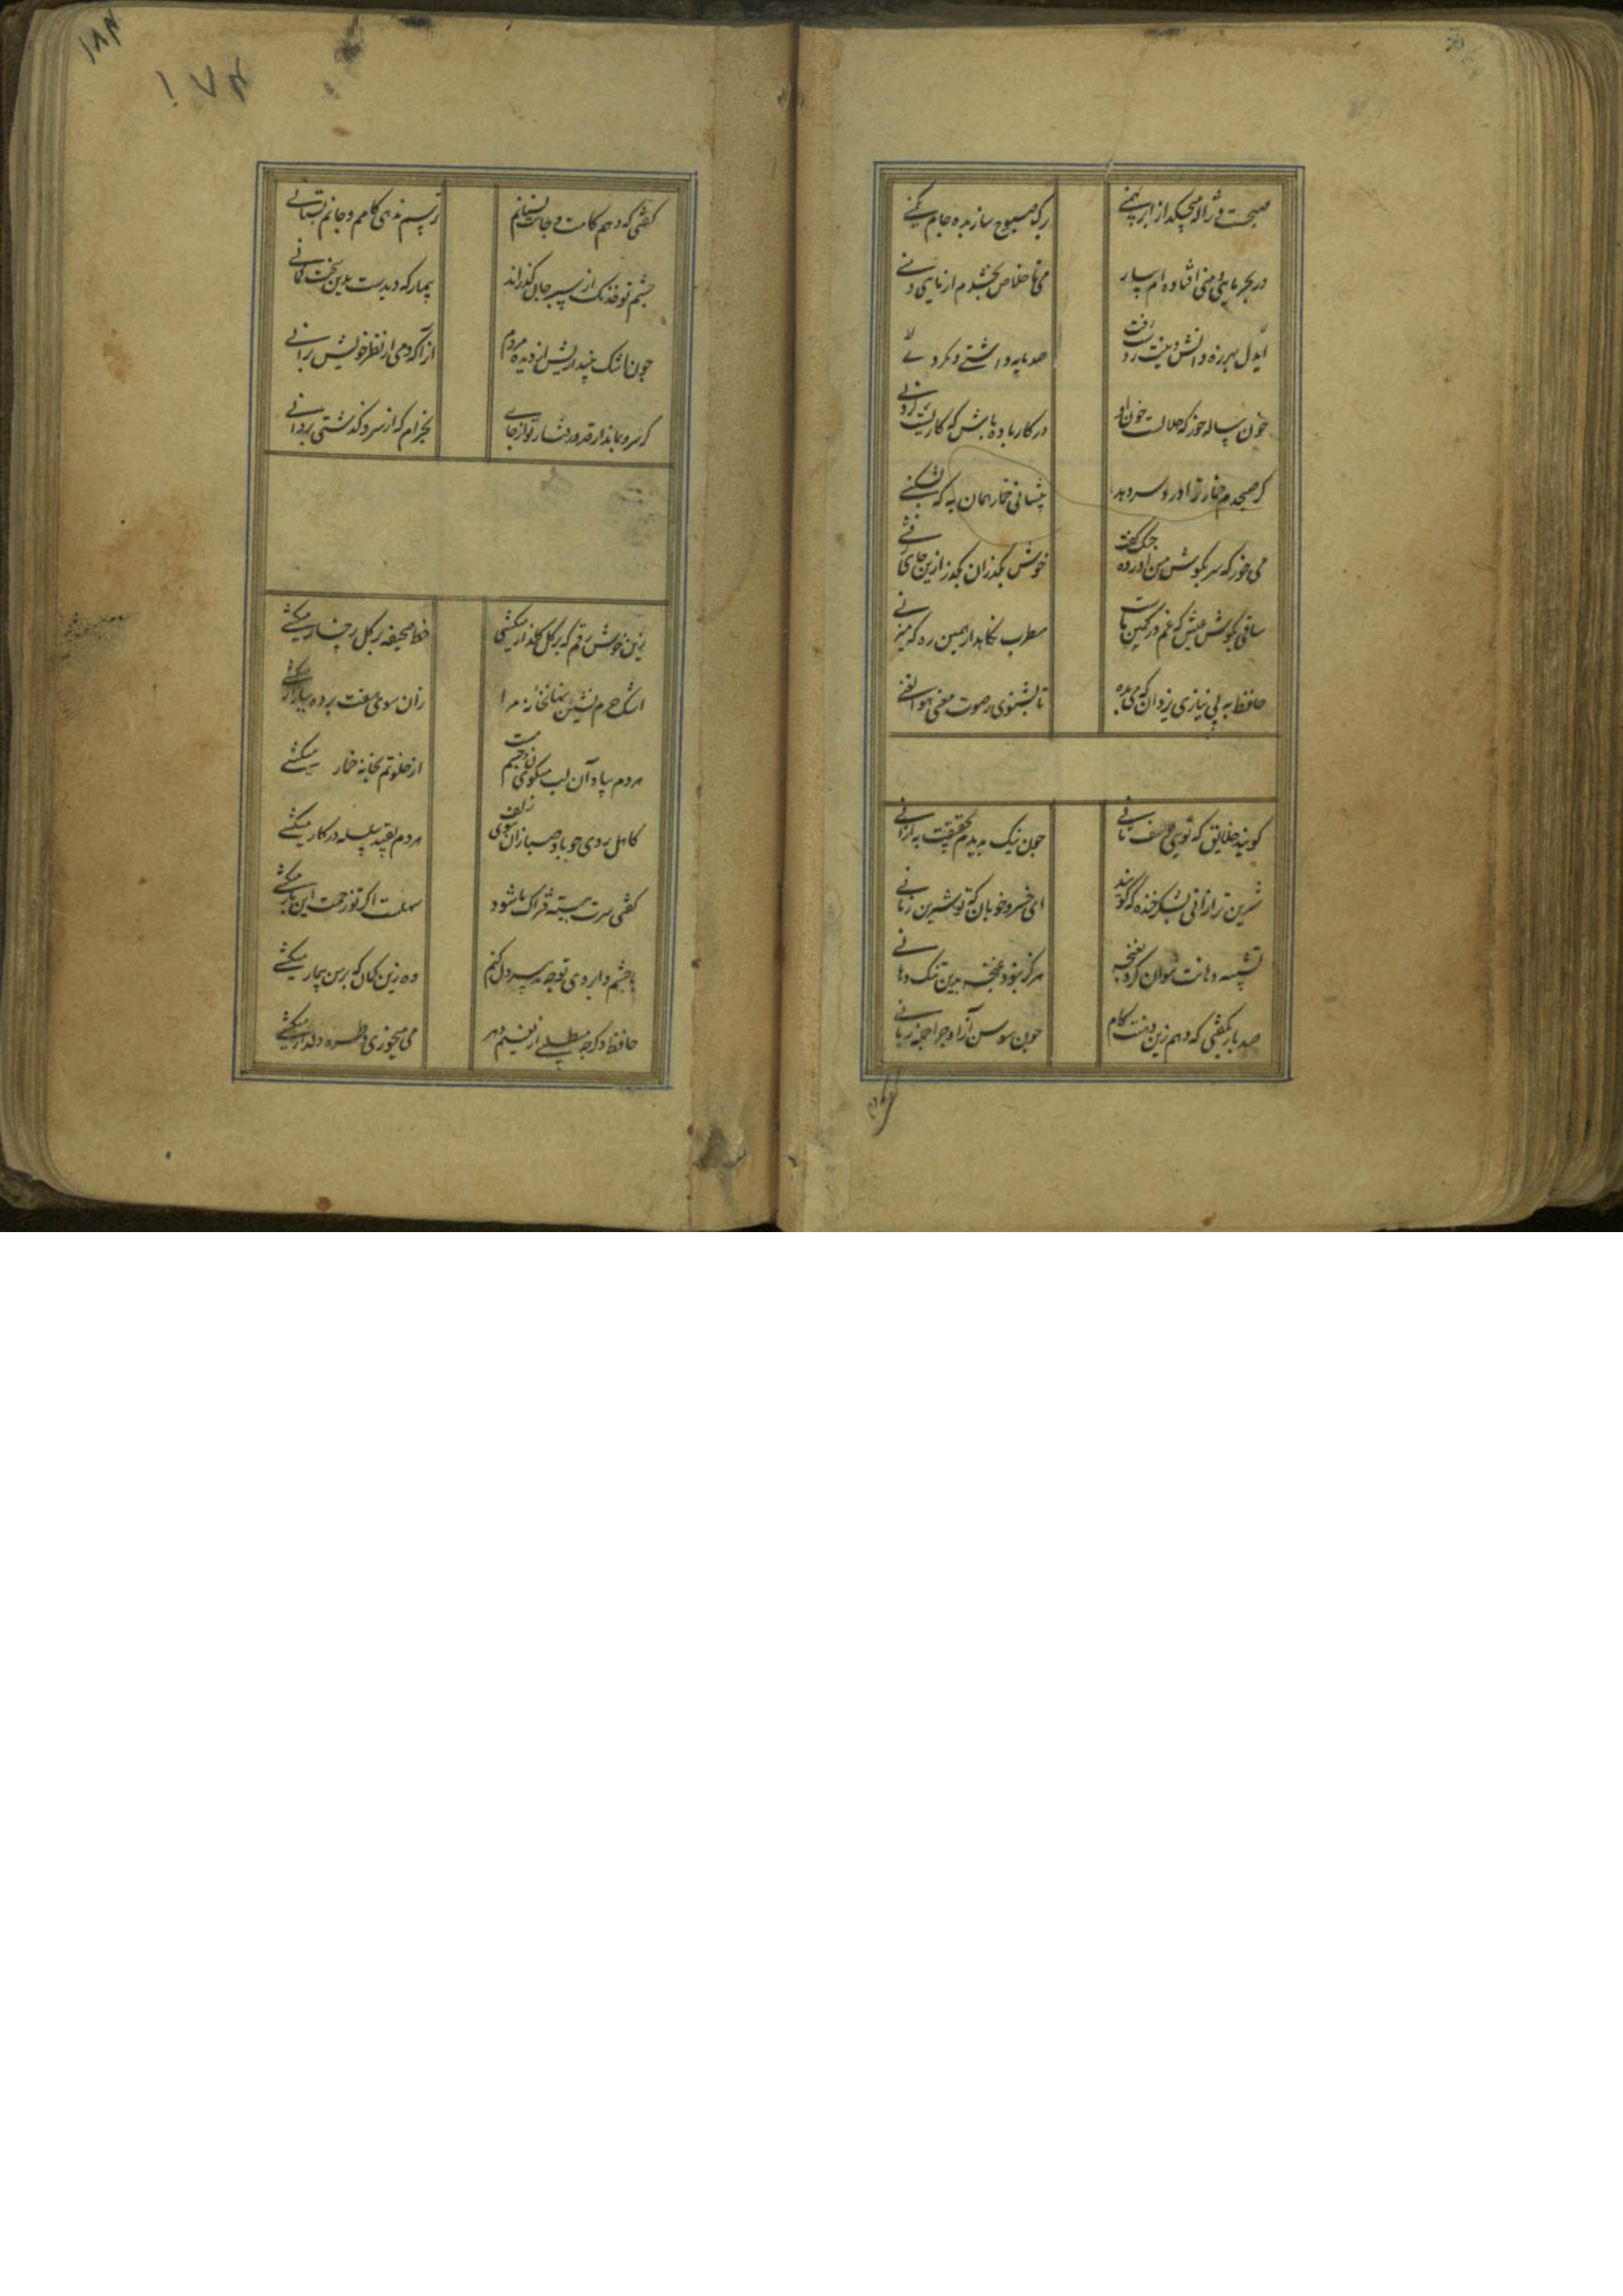 صبحست و ژاله میچکد از ابر بهمنی
برک صبوح ساز بده جام یکمنی
در بحر مایی و منی افتاده ام بیار
می تا خلاص بخشدم از مایی و منی
ایدل بهرزه دانش و عمرت ز دست رفت
صد مایه داشتی و نکردی
خون پیاله خور که حلالست خون او
در کار باده باش که کاریست کردنی
کر صبحدم خمار ترا درد سر دهد
پیشانی خمار همان به که بشکنی
می خور که سر بکوش من آورده جنک گفت
خوش بگذران بگذر ازین جای
ساقی بکوش باش که غم در کمین ماست
مطرب نگاهدار همین ره که میزنی
حافظ به بی نیازی یزدان که می بده
تا بشنوی ز صوت مغنی هو الغنی
کویند خلایق که تویی یوسف ثانی
چون نیک بدیدم بحقیقت به ازانی
شیرین تر ازانی بشکر خنده که کویند
ای خسرو خوبان که تو شیرین زمانی
تشبیه دهانت نتوان کرد بغنچه
هرکز نبود غنچه بدین تنک دهانی
صد بار بکفتی که دهم زین دهنت کام
چون سوسن آزاد چرا جمله زبانی
کفتی که دهم کامت و جانت بستانم
ترسم ندهی کامم و جانم بستانی
چشم تو خدنک از سپر جان گذراند
بیمار که دیدست بدین سخت کمانی
چون اشک بیندازیش از دیده مردم
آنرا که دمی از نظر خویش برانی
کر سرو بماند از قد و رفتار تو از جای
بخرام که از سرو کذشتی بروانی
زین خوش رقم که بر کل رخسار میکشی
خط بر صحیفه کل و کلزار میکشی
اشک حرم نشین نهانخانه مرا
زان سوی هفت پرده ببازار میکشی
هر دم بیاد آن لب میکون و چشم مست
از خلوتم بخانه خمار میکشی
کاهل روی چو باد صبا را ببوی زلف
هر دم بقید سلسله در کار میکشی
کفتی سرت ببسته فتراک ما شود
سهلست اکر تو زحمت این بار میکشی
با چشم و ابروی تو چه تدبیر دل کنم
وه زین کمان که بر من بیمار میکشی
حافظ دکر چه میطلبی از نعیم دهر
می میخوری و طره دلدار میکشی